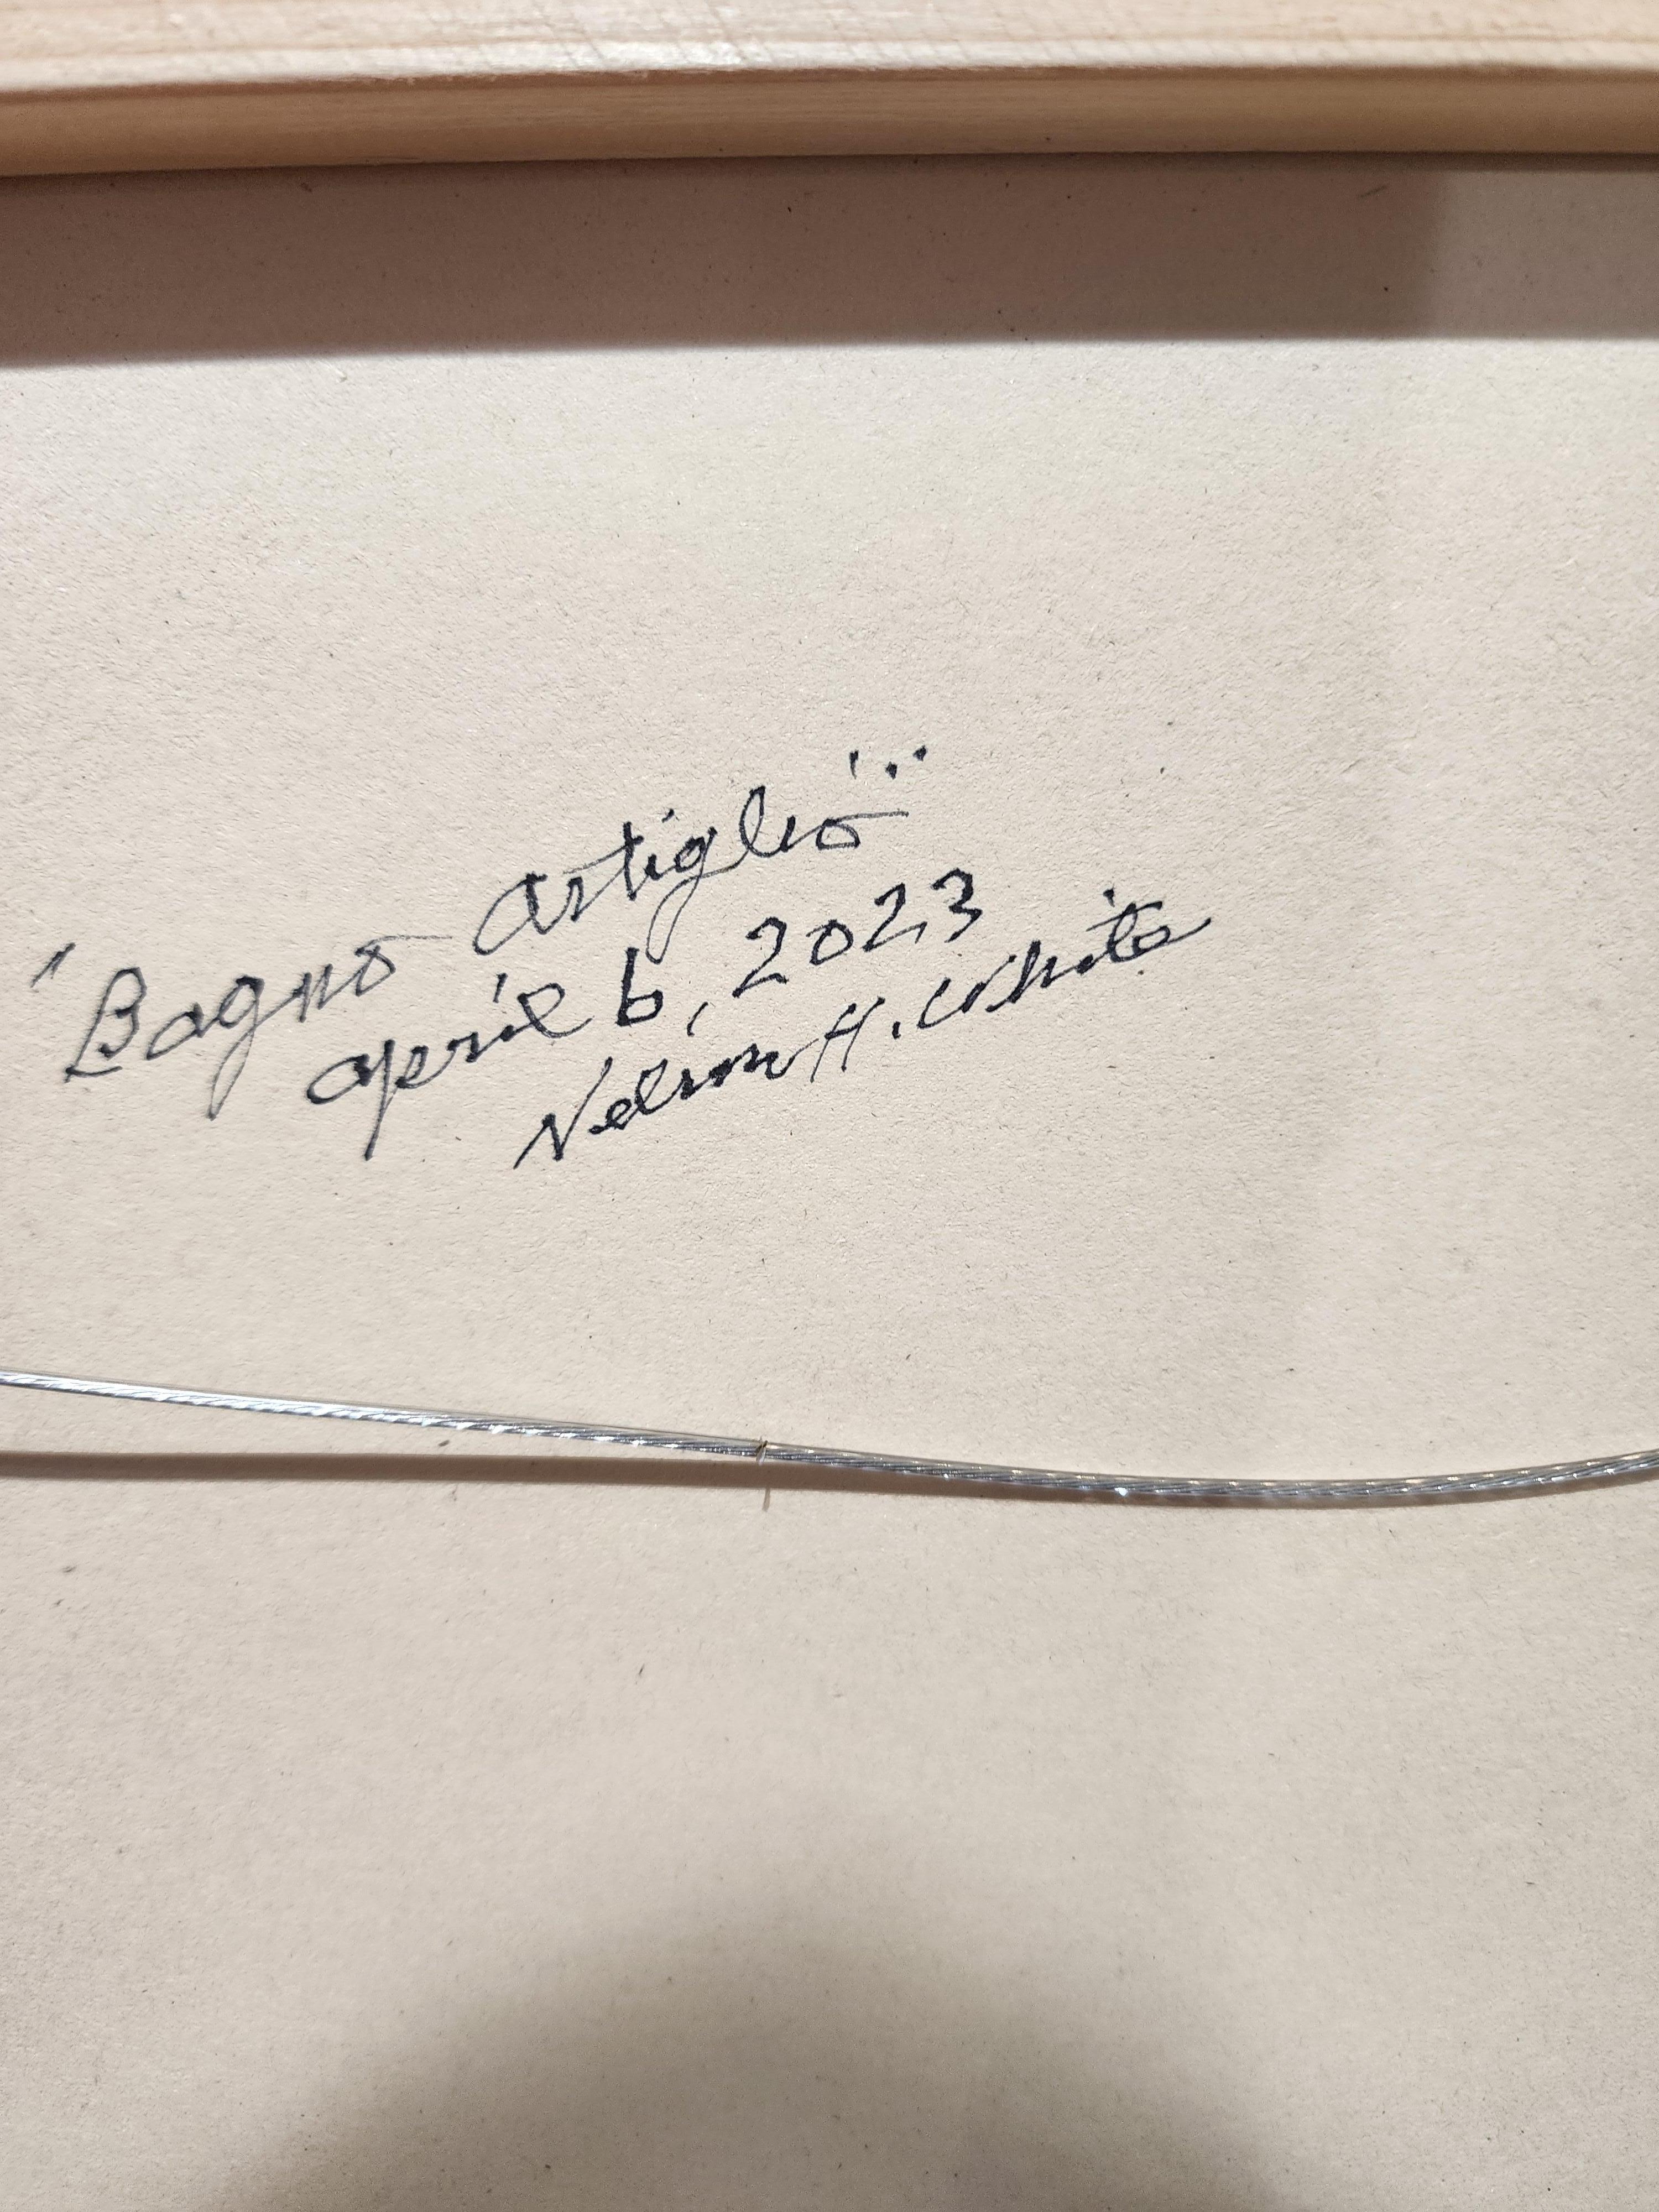 "Bagno Artiglio"
April 6, 2023
Nelson H. White